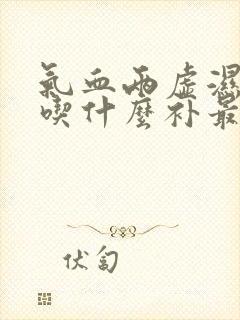 氣血兩虛濕
喫什麼补最
伏匐